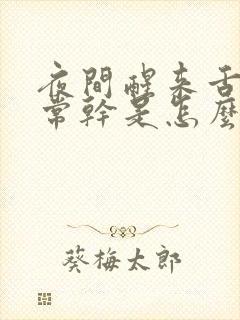 夜間醒來舌
常幹是怎麼
葵梅太郎